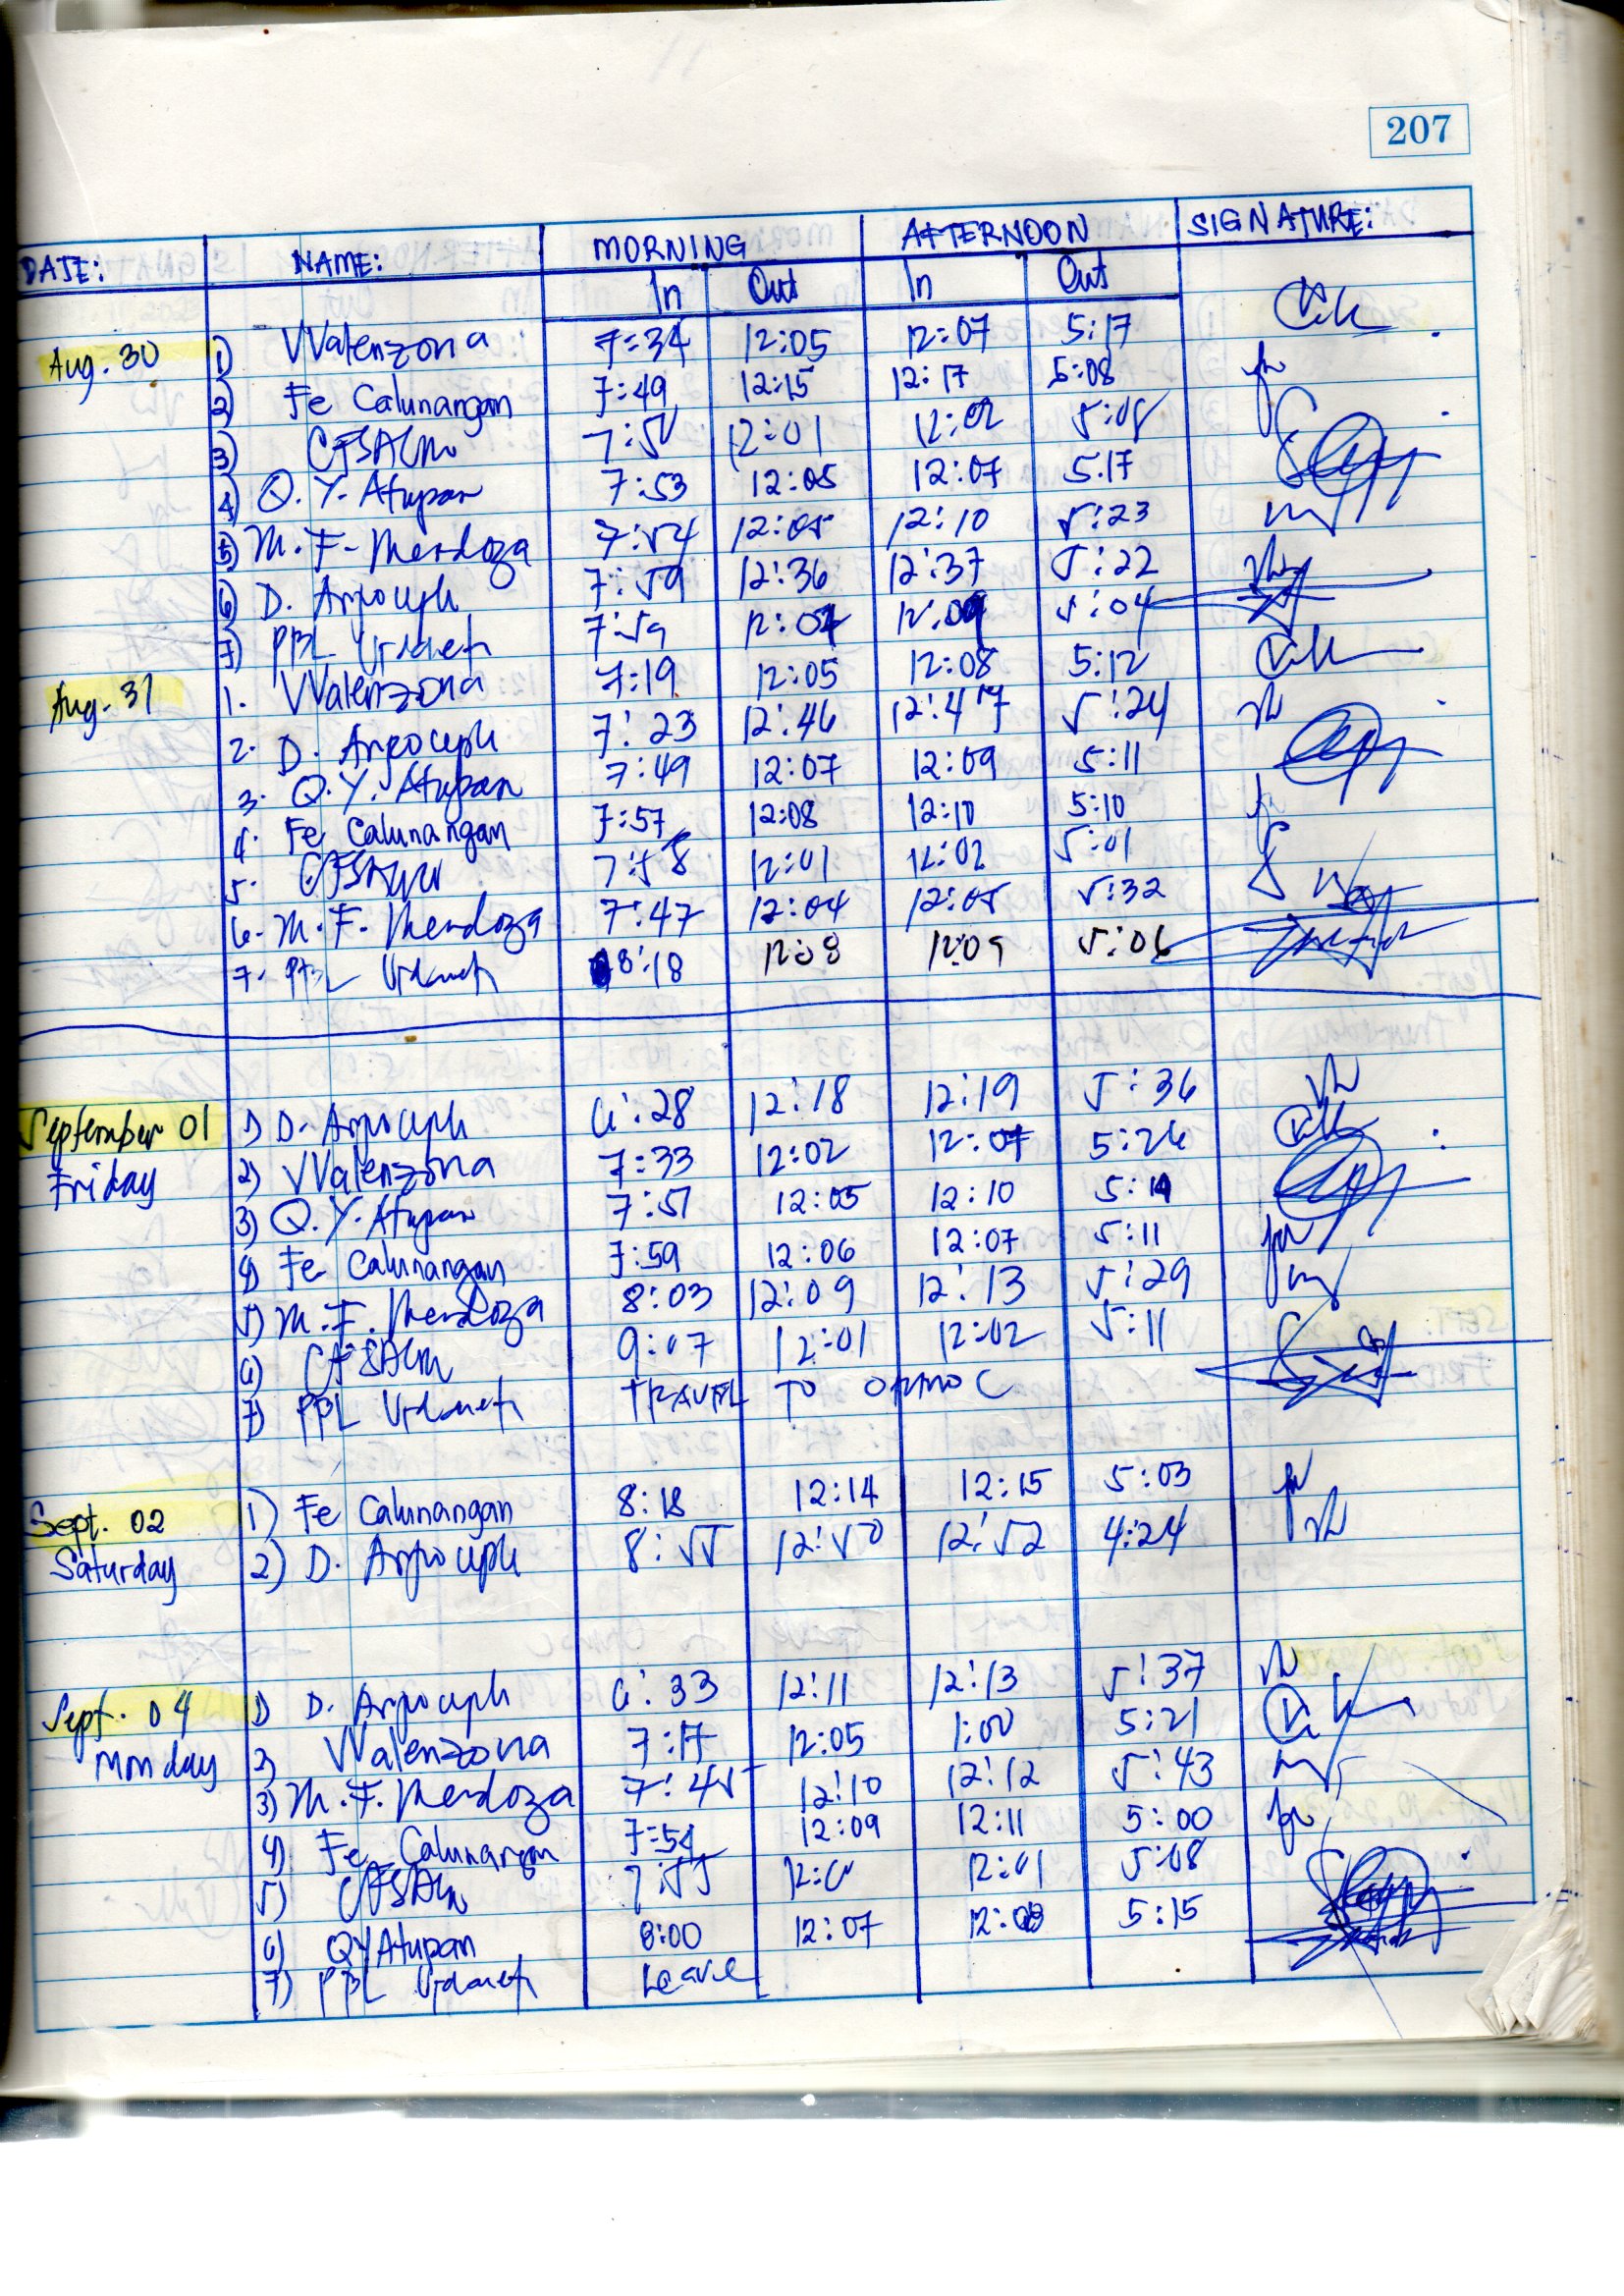 207
DATE: NAME: MORNING AFTERNOON SIGNATURE:
In Out In Out
Aug. 30 1) VValenzona 7:34 12:05 12:07 5:17
2) Fe Calunangan 7:49 12:15 12:17 5:08
3) 12:01 12:02
4) Q. Y. Atupan 7:53 12:05 12:07 5.17
5) M. F. Mendoza 7:54 12:05 12:10 5:23
6) D. 7:59 12:36 12:37 5:22
7) PBL 7:59 5:04
Aug. 31 1. VValenzona 7:19 12:05 12:08 5:12
2. D. 7:23 12:46 12:47 5:24
3. Q. Y. Atupan 7:49 12:07 12:09 5:11
4. Fe Calunangan 7:57 12:08 12:10 5:10
5. 7:58 12:01 12:02 5:01
6. M. F. Mendoza 7:47 12:04 12:05 5:32
7. PBL 8:18 12:08 12:09 5:06
September 01 1) D. 6:28 12:18 12:19 5:36
Friday 2) VValenzona 7:33 12:02 12:07 5:26
3) Q. Y. Atupan 7:51 12:05 12:10
4) Fe Calunangan 7:59 12:06 12:07 5:11
5) M. F. Mendoza 8:03 12:09 12:13 5:29
6) 9:07 12:01 12:02 5:11
7) PBL TRAVEL TO ORMOC
Sept. 02 1) Fe Calunangan 8:18 12:14 12:15 5:03
Saturday 2) D. 8:55 12:50 12:52 4:24
Sept. 04 1) D. 6:33 12:11 12:13 5:37
Monday 2) VValenzona 7:17 12:05 1:00 5:21
3) M. F. Mendoza 7:45 12:10 12:12 5:43
4) Fe Calunangan 7:54 12:09 12:11 5:00
5) 7:55 12:01 5:08
6) QYAtupan 8:00 12:07 12:08 5:15
7) PBL Leave